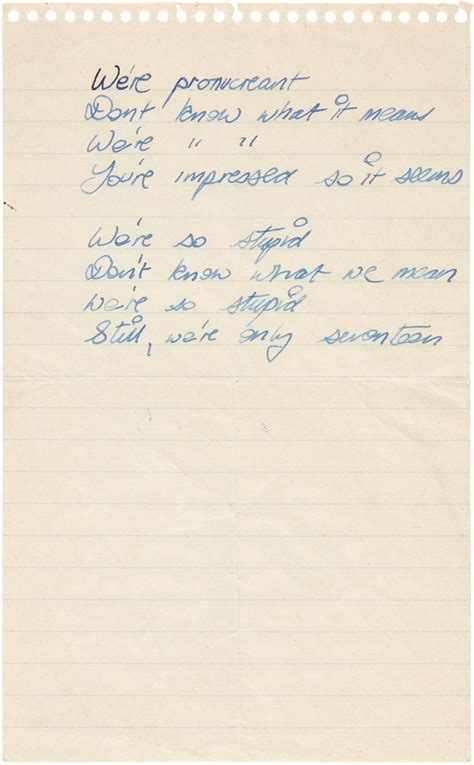 We're pronucreant
Dont know what it means
We're " "
You're impressed so it seems
We're so stupid
Don't know what we mean
We're so stupid
Still, we're only seventeen